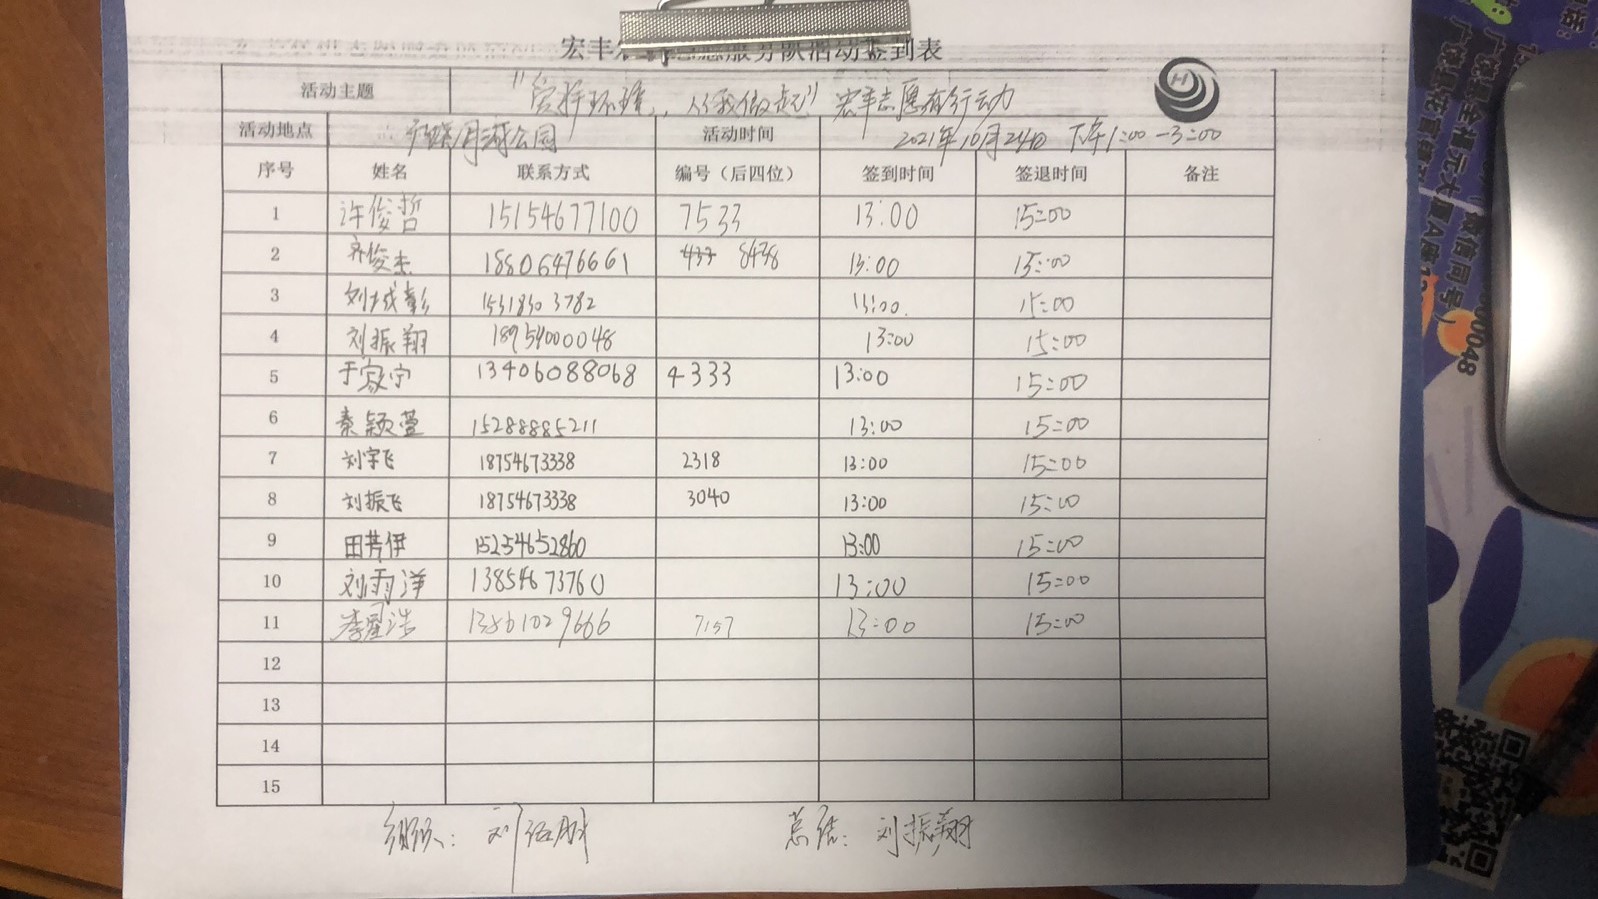 宏丰 志愿服务队活动签到表
活动主题 "爱护环境,从我做起" 宏丰志愿有行动力
活动地点 广饶月河公园 活动时间 2021年10月24日 下午1:00-3:00
序号 姓名 联系方式 编号(后四位) 签到时间 签退时间 备注
1 许俊哲 15154677100 7533 13:00 15:00
2 齐俊杰 18806476661 433 8478 13:00 15:00
3 刘城彰 15318303782 13:00. 15:00
4 刘振翔 18954000048 13:00 15:00
5 于家宁 13406088068 4333 13:00 15:00
6 秦颖萱 15288885211 13:00 15:00
7 刘宇飞 18754673338 2318 13:00 15:00
8 刘振飞 18754673338 3040 13:00 15:00
9 田芳伊 15254652860 13:00 15:00
10 刘雨洋 13854673760 13:00 15:00
11 李星浩 13561029666 7157 13:00 15:00
12
13
14
15
组织: 刘 总结: 刘振翔